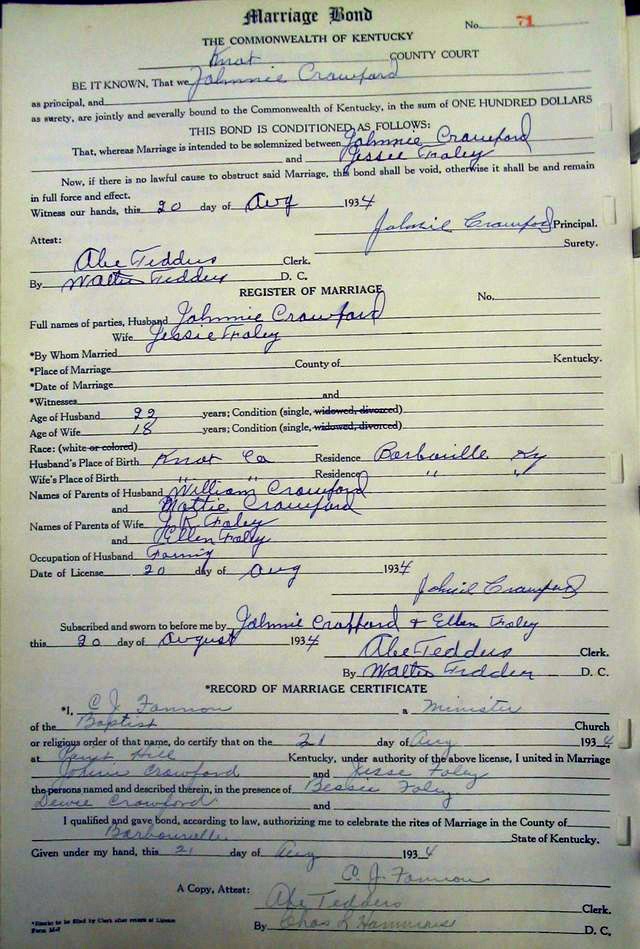 Marriage Bond
No. 71
THE COMMONWEALTH OF KENTUCKY
Knox COUNTY COURT
BE IT KNOWN, That we Johnnie Crawford
as principal, and
as surety, are jointly and severally bound to the Commonwealth of Kentucky, in the sum of ONE HUNDRED DOLLARS
THIS BOND IS CONDITIONED AS FOLLOWS:
That, whereas Marriage is intended to be solemnized between Johnnie Crawford
and Jessie Foley
Now, if there is no lawful cause to obstruct said Marriage, this bond shall be void, otherwise it shall be and remain
in full force and effect.
Witness our hands, this 20 day of Aug 1934
Johnie Crawford Principal.
Surety.
Attest:
Abe Tedders Clerk.
By Walter Tedders D. C.
REGISTER OF MARRIAGE
No.
Full names of parties, Husband Johnnie Crawford
Wife Jessie Foley
*By Whom Married
*Place of Marriage County of Kentucky.
*Date of Marriage
*Witnesses and
Age of Husband 22 years; Condition (single, widowed, divorced)
Age of Wife 18 years; Condition (single, widowed, divorced)
Race: (white or colored)
Husband's Place of Birth Knox Co Residence Barboville Ky
Wife's Place of Birth " " Residence " "
Names of Parents of Husband William Crawford
and Mattie Crawford
Names of Parents of Wife J. R. Foley
and Ellen Foley
Occupation of Husband Farming
Date of License 20 day of Aug 1934
Johnie Crawford
Subscribed and sworn to before me by Johnnie Crafford & Ellen Foley
this 20 day of August 1934 Abe Tedders Clerk.
By Walter Tedders D. C.
*RECORD OF MARRIAGE CERTIFICATE
*I, C. J. Fannon a Minister
of the Baptist Church
or religious order of that name, do certify that on the 21 day of Aug 1934
at Hill Kentucky, under authority of the above license, I united in Marriage
Johnie Crawford and Jesse Foley
the persons named and described therein, in the presence of Bessie Foley
Dewie Crawford and
I qualified and gave bond, according to law, authorizing me to celebrate the rites of Marriage in the County of
Barbourville State of Kentucky.
Given under my hand, this 21 day of Aug 1934
C. J. Fannon
A Copy, Attest: Abe Tedders Clerk.
By Chas D. C.
*Blanks to be filled by Clerk after return of License